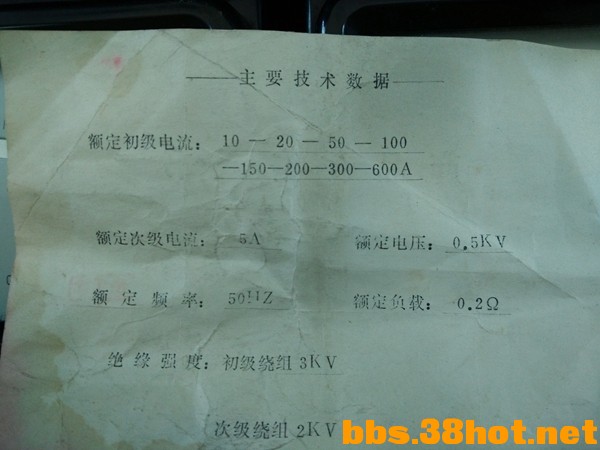 主要技术数据
额定初级电流：10—20—50—100
—150—200—300—600A
额定次级电流：5A 额定电压：0.5KV
额定频率：50HZ 额定负载：0.2Ω
绝缘强度：初级绕组3KV
次级绕组2KV
bbs.38hot.net